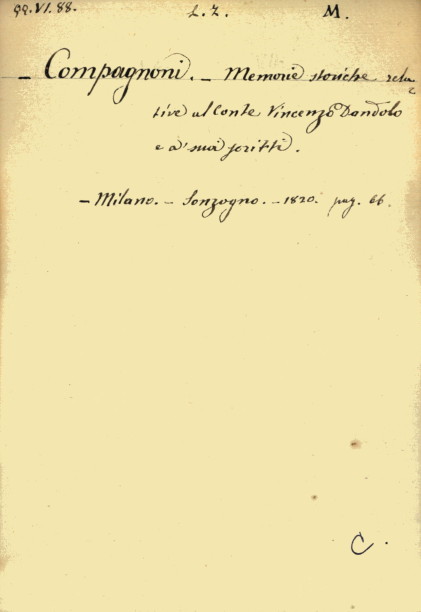 QQ.VI.88. L.Z. M.
_ Compagnoni. _ Memorie storiche rela=
tive al Conte Vincenzo Dandolo
e a' suoi scritti.
_ Milano. _ Sonzogno. _ 1820. pag. 66.
C.